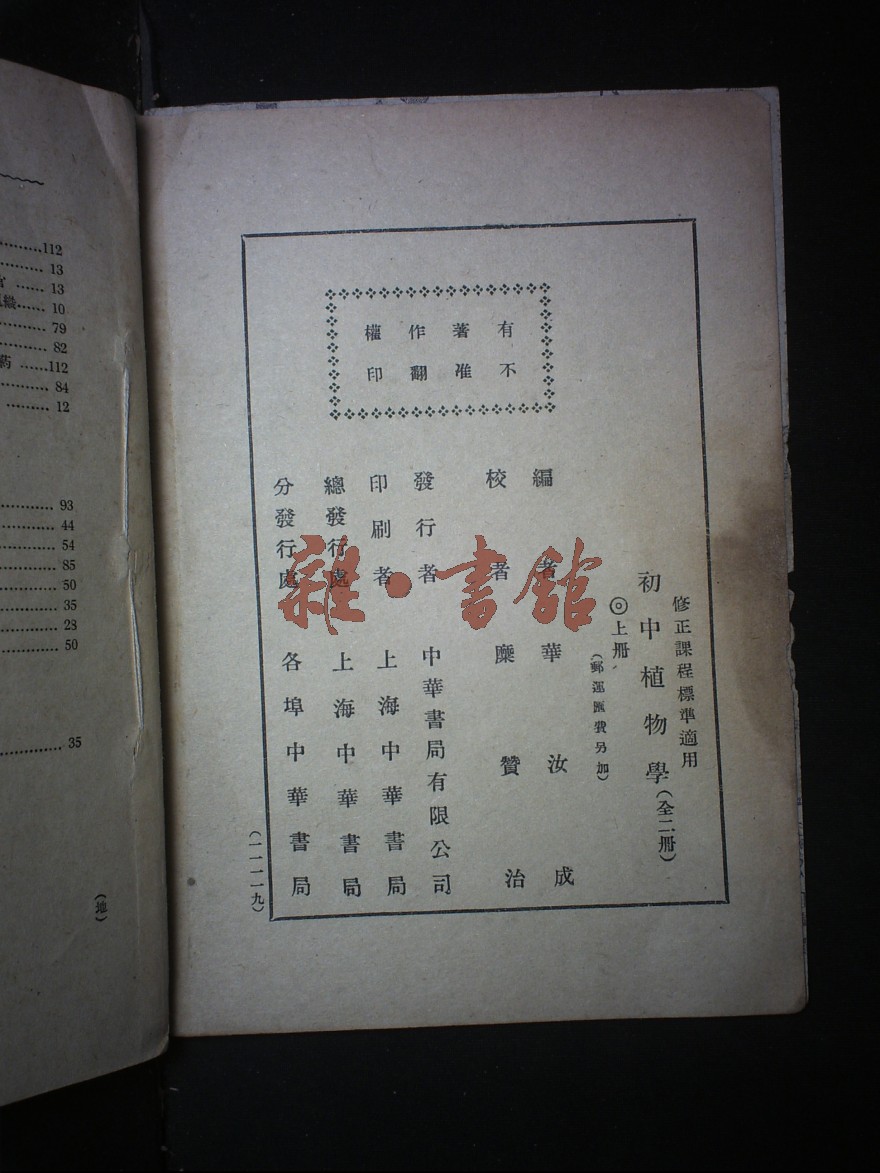 112
13
13
織 10
79
82
藥 112
84
12
93
44
54
85
50
35
28
50
35
(地)
有著作權
不准翻印
修正課程標準適用
初中植物學(全二冊)
◎上冊
(郵運匯費另加)
編者 華汝成
校者 糜贊治
發行者 中華書局有限公司
印刷者 上海中華書局
總發行處 上海中華書局
分發行處 各埠中華書局
(一一一一九)
雜·書館